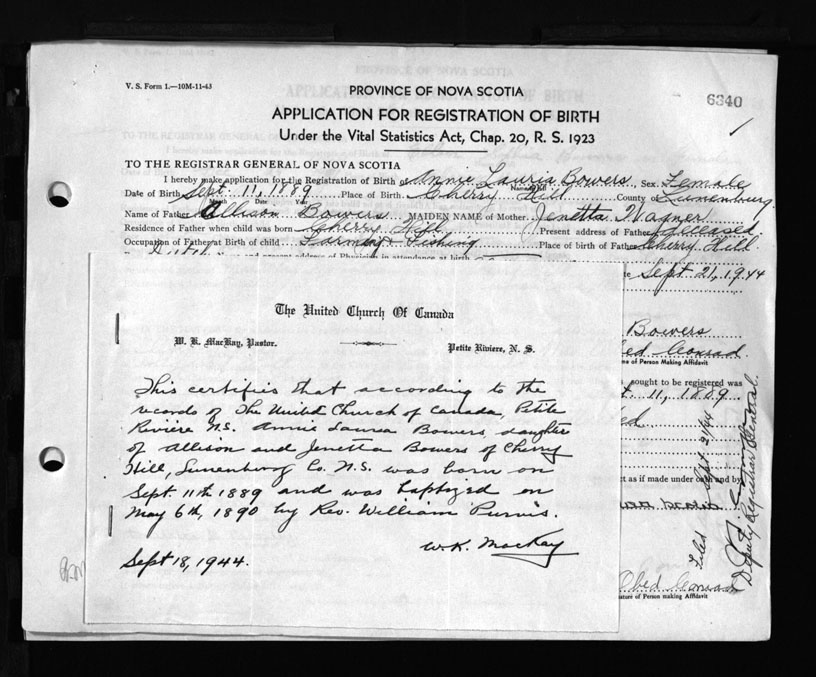 V. S. Form 1.—10M-11-43
PROVINCE OF NOVA SCOTIA
6340
APPLICATION FOR REGISTRATION OF BIRTH
Under the Vital Statistics Act, Chap. 20, R. S. 1923
TO THE REGISTRAR GENERAL OF NOVA SCOTIA
I hereby make application for the Registration of Birth of Annie Lauria Bowers Sex Female
Date of Birth Sept. 11, 1889 Place of Birth Cherry Hill County of Lunenburg
Month Date Year
Name of Father Allison Bowers MAIDEN NAME of Mother Jenetta Wagner
Residence of Father when child was born Cherry Hill Present address of Father deceased
Occupation of Father at Birth of child Farming & Fishing Place of birth of Father Cherry Hill
and present address of Physician in attendance at birth
Sept 21, 1944
The United Church Of Canada
W. K. MacKay, Pastor. Petite Riviere, N. S.
This certifies that according to the
records of The United Church of Canada, Petite
Riviere N.S. Annie Laurea Bowers, daughter
of Allison and Jenetta Bowers of Cherry
Hill, Lunenburg Co. N.S. was born on
Sept. 11th 1889 and was baptized on
May 6th, 1890 by Rev. William Purvis.
W.K. MacKay
Sept 18, 1944.
Bowers
Conrad
me of Person Making Affidavit
sought to be registered was
11, 1889
ct as if made under oath and by
Obed Conrad
ature of Person making Affidavit
Filed Sept 21/44
Deputy Registrar General.